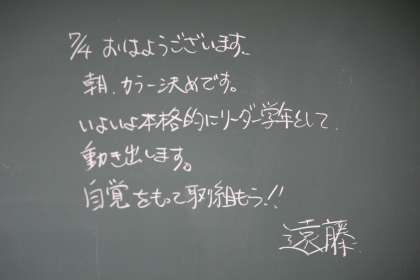 7/4 おはようございます。
朝、カラー決めです。
いよいよ本格的にリーダー学年として、
動き出します。
自覚をもって取り組もう!!
遠藤